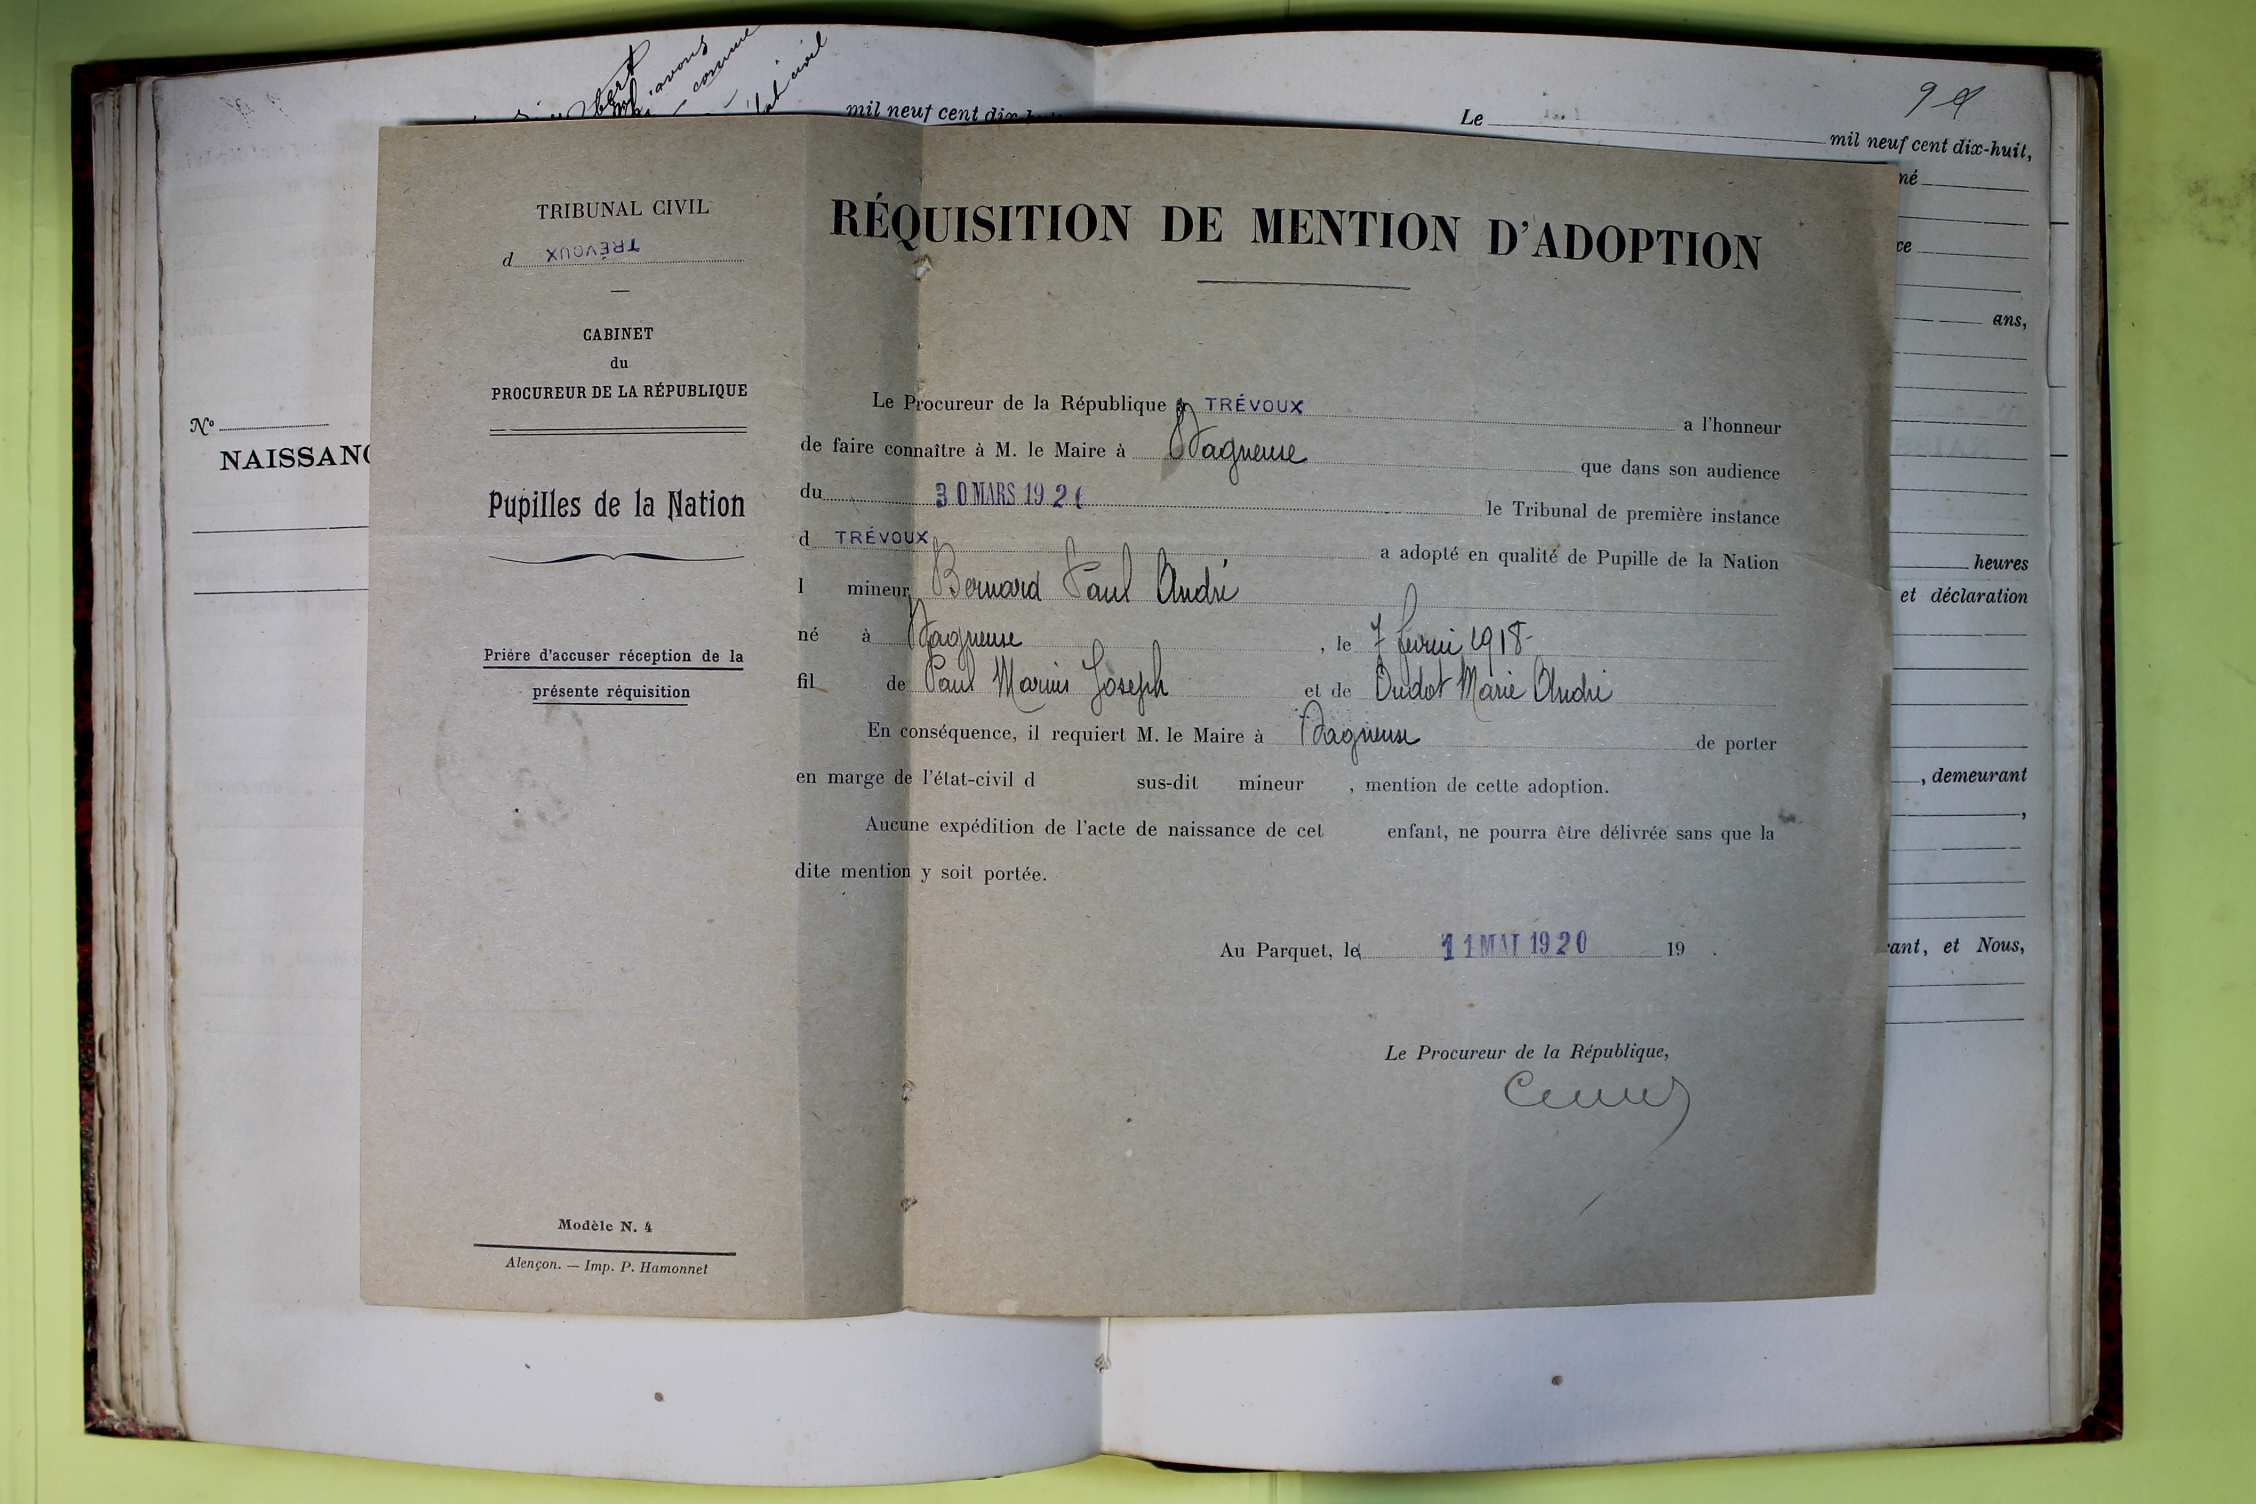 avons
comme
état civil
mil neuf cent dix-hui
94
Le
mil neuf cent dix-huit,
né
ce
ans,
heures
et déclaration
, demeurant
,
rant, et Nous,
No
NAISSANC
TRIBUNAL CIVIL
d TRÉVOUX
CABINET
du
PROCUREUR DE LA RÉPUBLIQUE
Pupilles de la Nation
Prière d'accuser réception de la
présente réquisition
Modèle N. 4
Alençon. — Imp. P. Hamonnet
RÉQUISITION DE MENTION D'ADOPTION
Le Procureur de la République à TRÉVOUX a l'honneur
de faire connaître à M. le Maire à Dagneux que dans son audience
du 30 MARS 192 le Tribunal de première instance
d TRÉVOUX a adopté en qualité de Pupille de la Nation
l mineur Bernard Paul André
né à Dagneux , le 7 février 1918
fil de Paul Marius Joseph et de Oudot Marie André
En conséquence, il requiert M. le Maire à Dagneux de porter
en marge de l'état-civil d sus-dit mineur , mention de cette adoption.
Aucune expédition de l'acte de naissance de cet enfant, ne pourra être délivrée sans que la
dite mention y soit portée.
Au Parquet, le 11 MAI 1920 19 .
Le Procureur de la République,